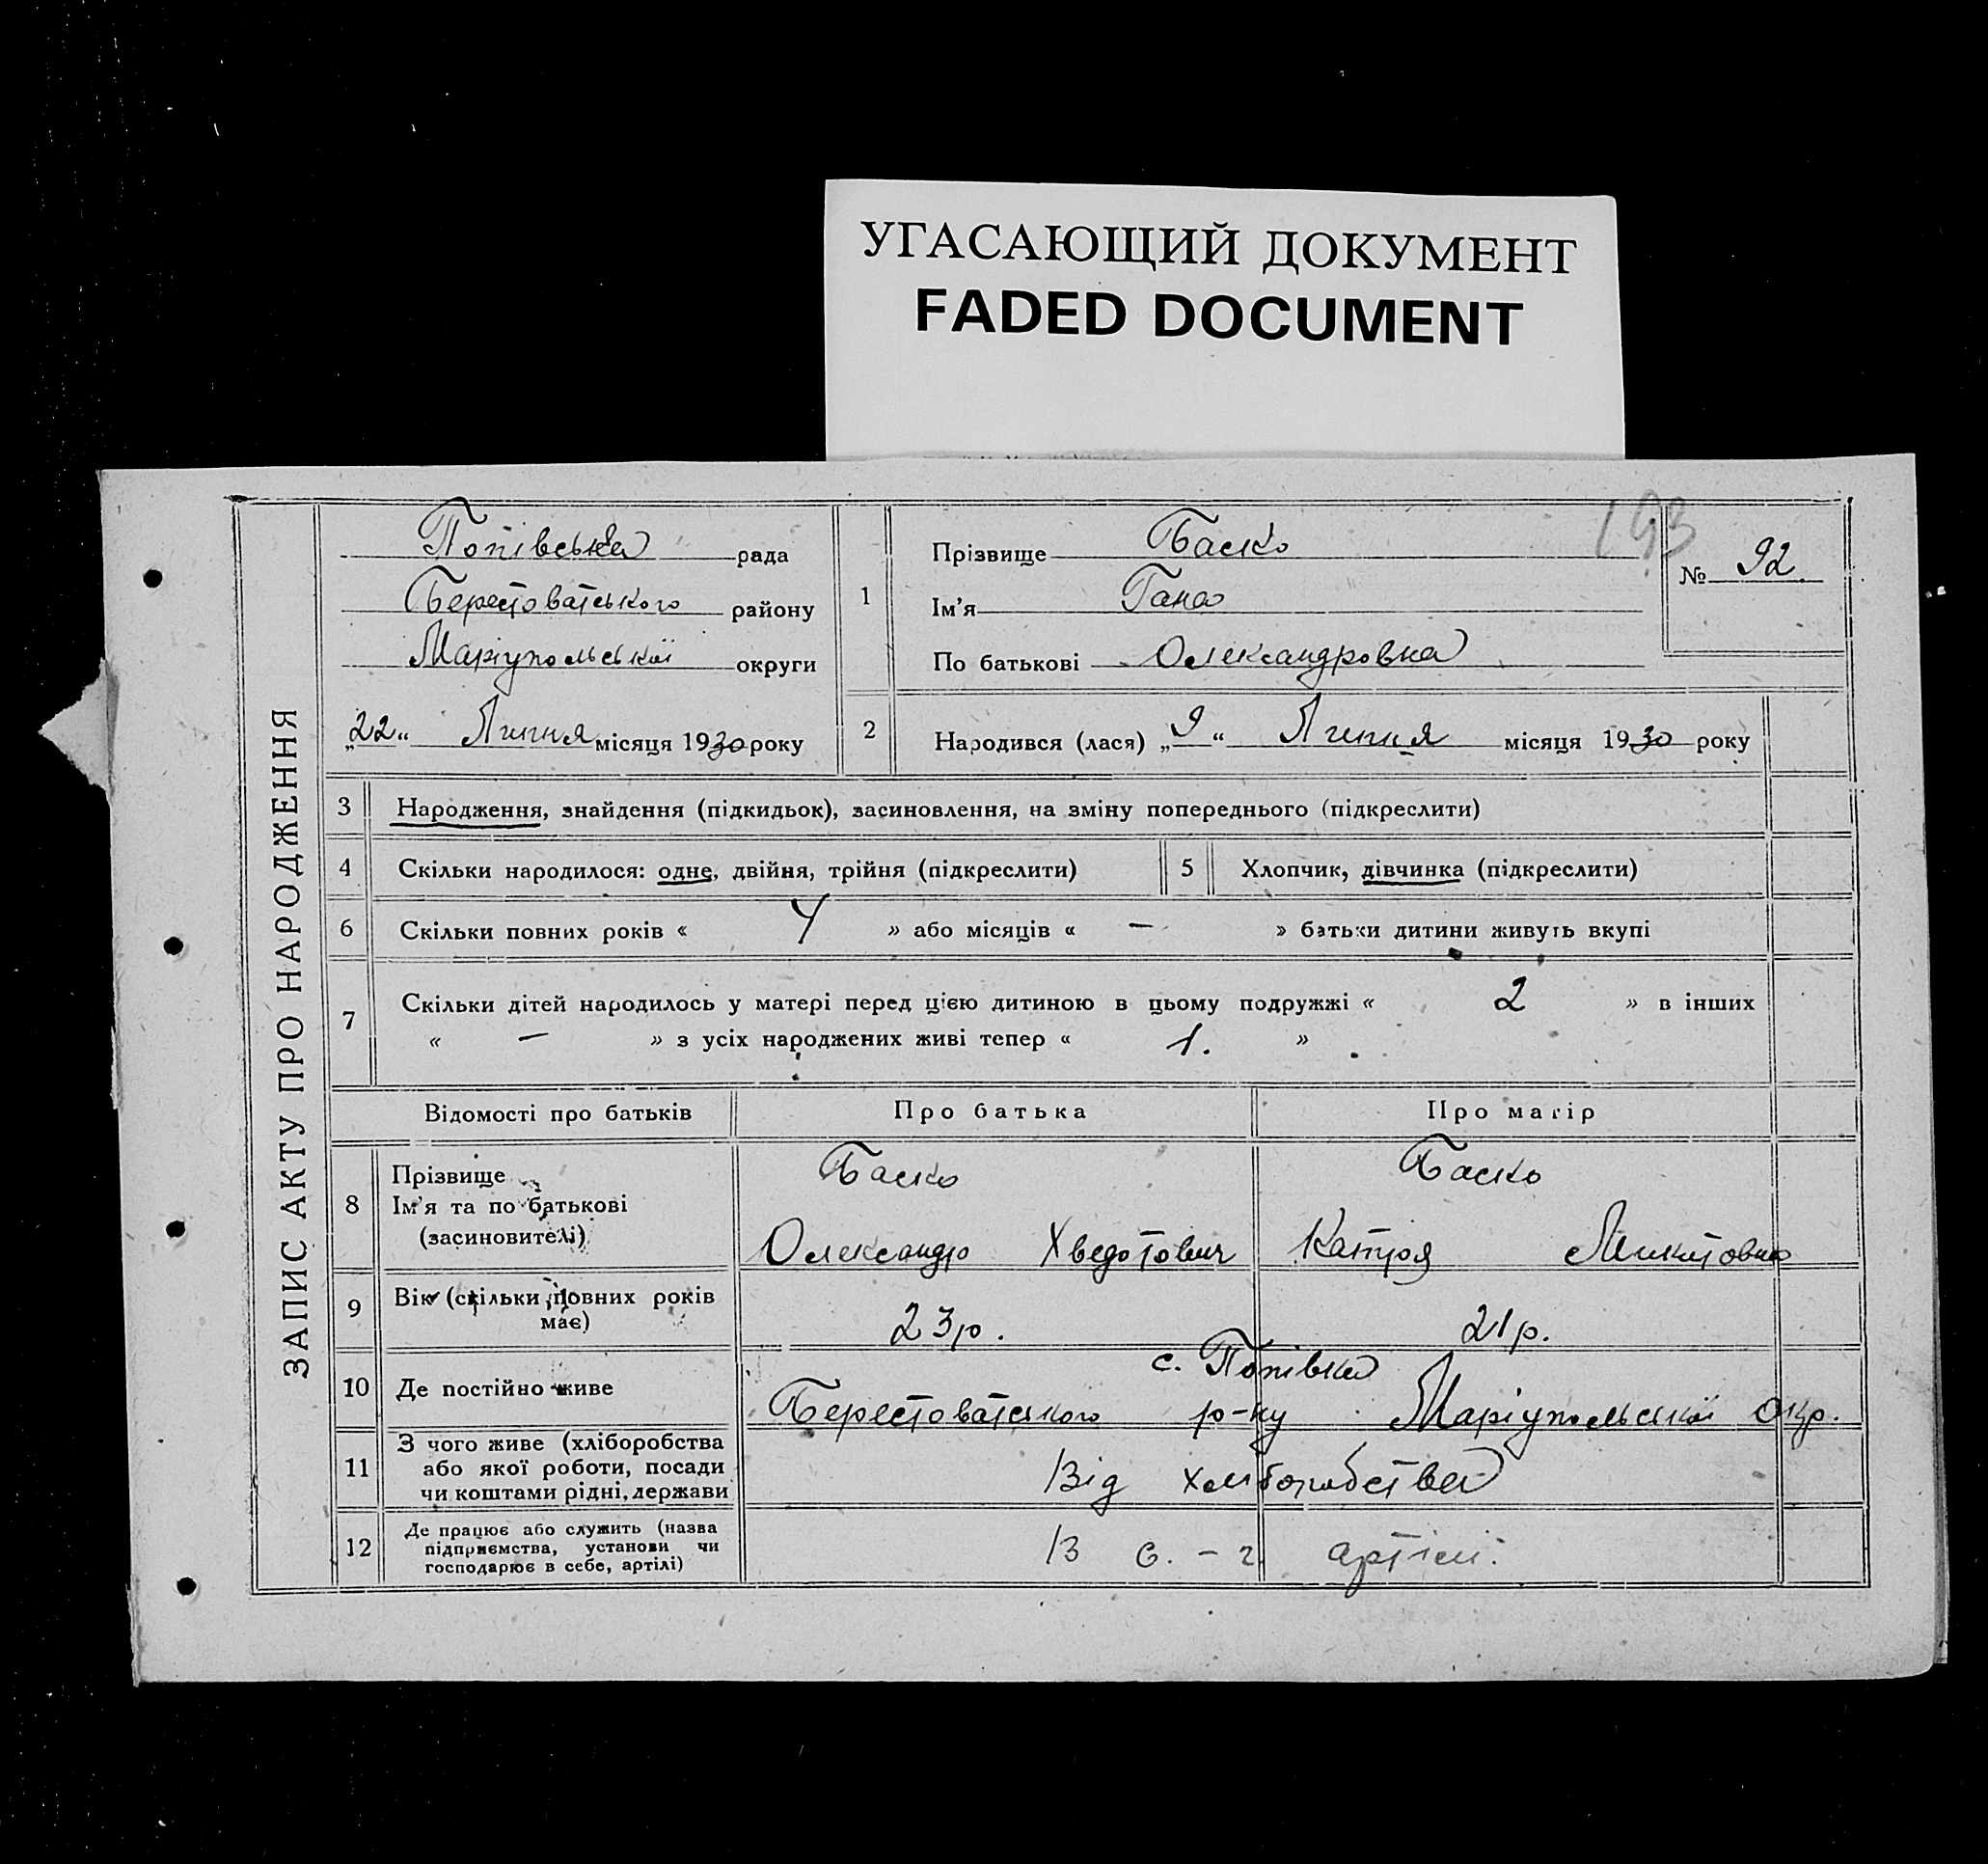 УГАСАЮЩИЙ ДОКУМЕНТ
FADED DOCUMENT
193
ЗАПИС АКТУ ПРО НАРОДЖЕННЯ
Попівська рада
Берестоватського району
Маріупольської округи
„22“ Липня місяця 1930 року
1
Прізвище Баско
Ім'я Гана
По батькові Олександровна
№ 92.
2
Народився (лася) „9“ Липня місяця 1930 року
3 Народження, знайдення (підкидьок), засиновлення, на зміну попереднього (підкреслити)
4 Скільки народилося: одне, двійня, трійня (підкреслити)
5 Хлопчик, дівчинка (підкреслити)
6 Скільки повних років « 4 » або місяців « — » батьки дитини живуть вкупі
7 Скільки дітей народилось у матері перед цією дитиною в цьому подружжі « 2 » в інших
« — » з усіх народжених живі тепер « 1. »
Відомості про батьків Про батька Про матір
8 Прізвище
Ім'я та по батькові
(засиновителі)
Баско
Олександр Хведотович
Баско
Катря Микитовна
9 Вік (скільки повних років
має)
23 р. 21 р.
10 Де постійно живе
с. Попівка
Берестоватського р-ну Маріупольської окр.
11 З чого живе (хліборобства
або якої роботи, посади
чи коштами рідні, держави
Від хліборобства
12 Де працює або служить (назва
підприємства, установи чи
господарює в себе, артілі)
В с.-г. артілі.